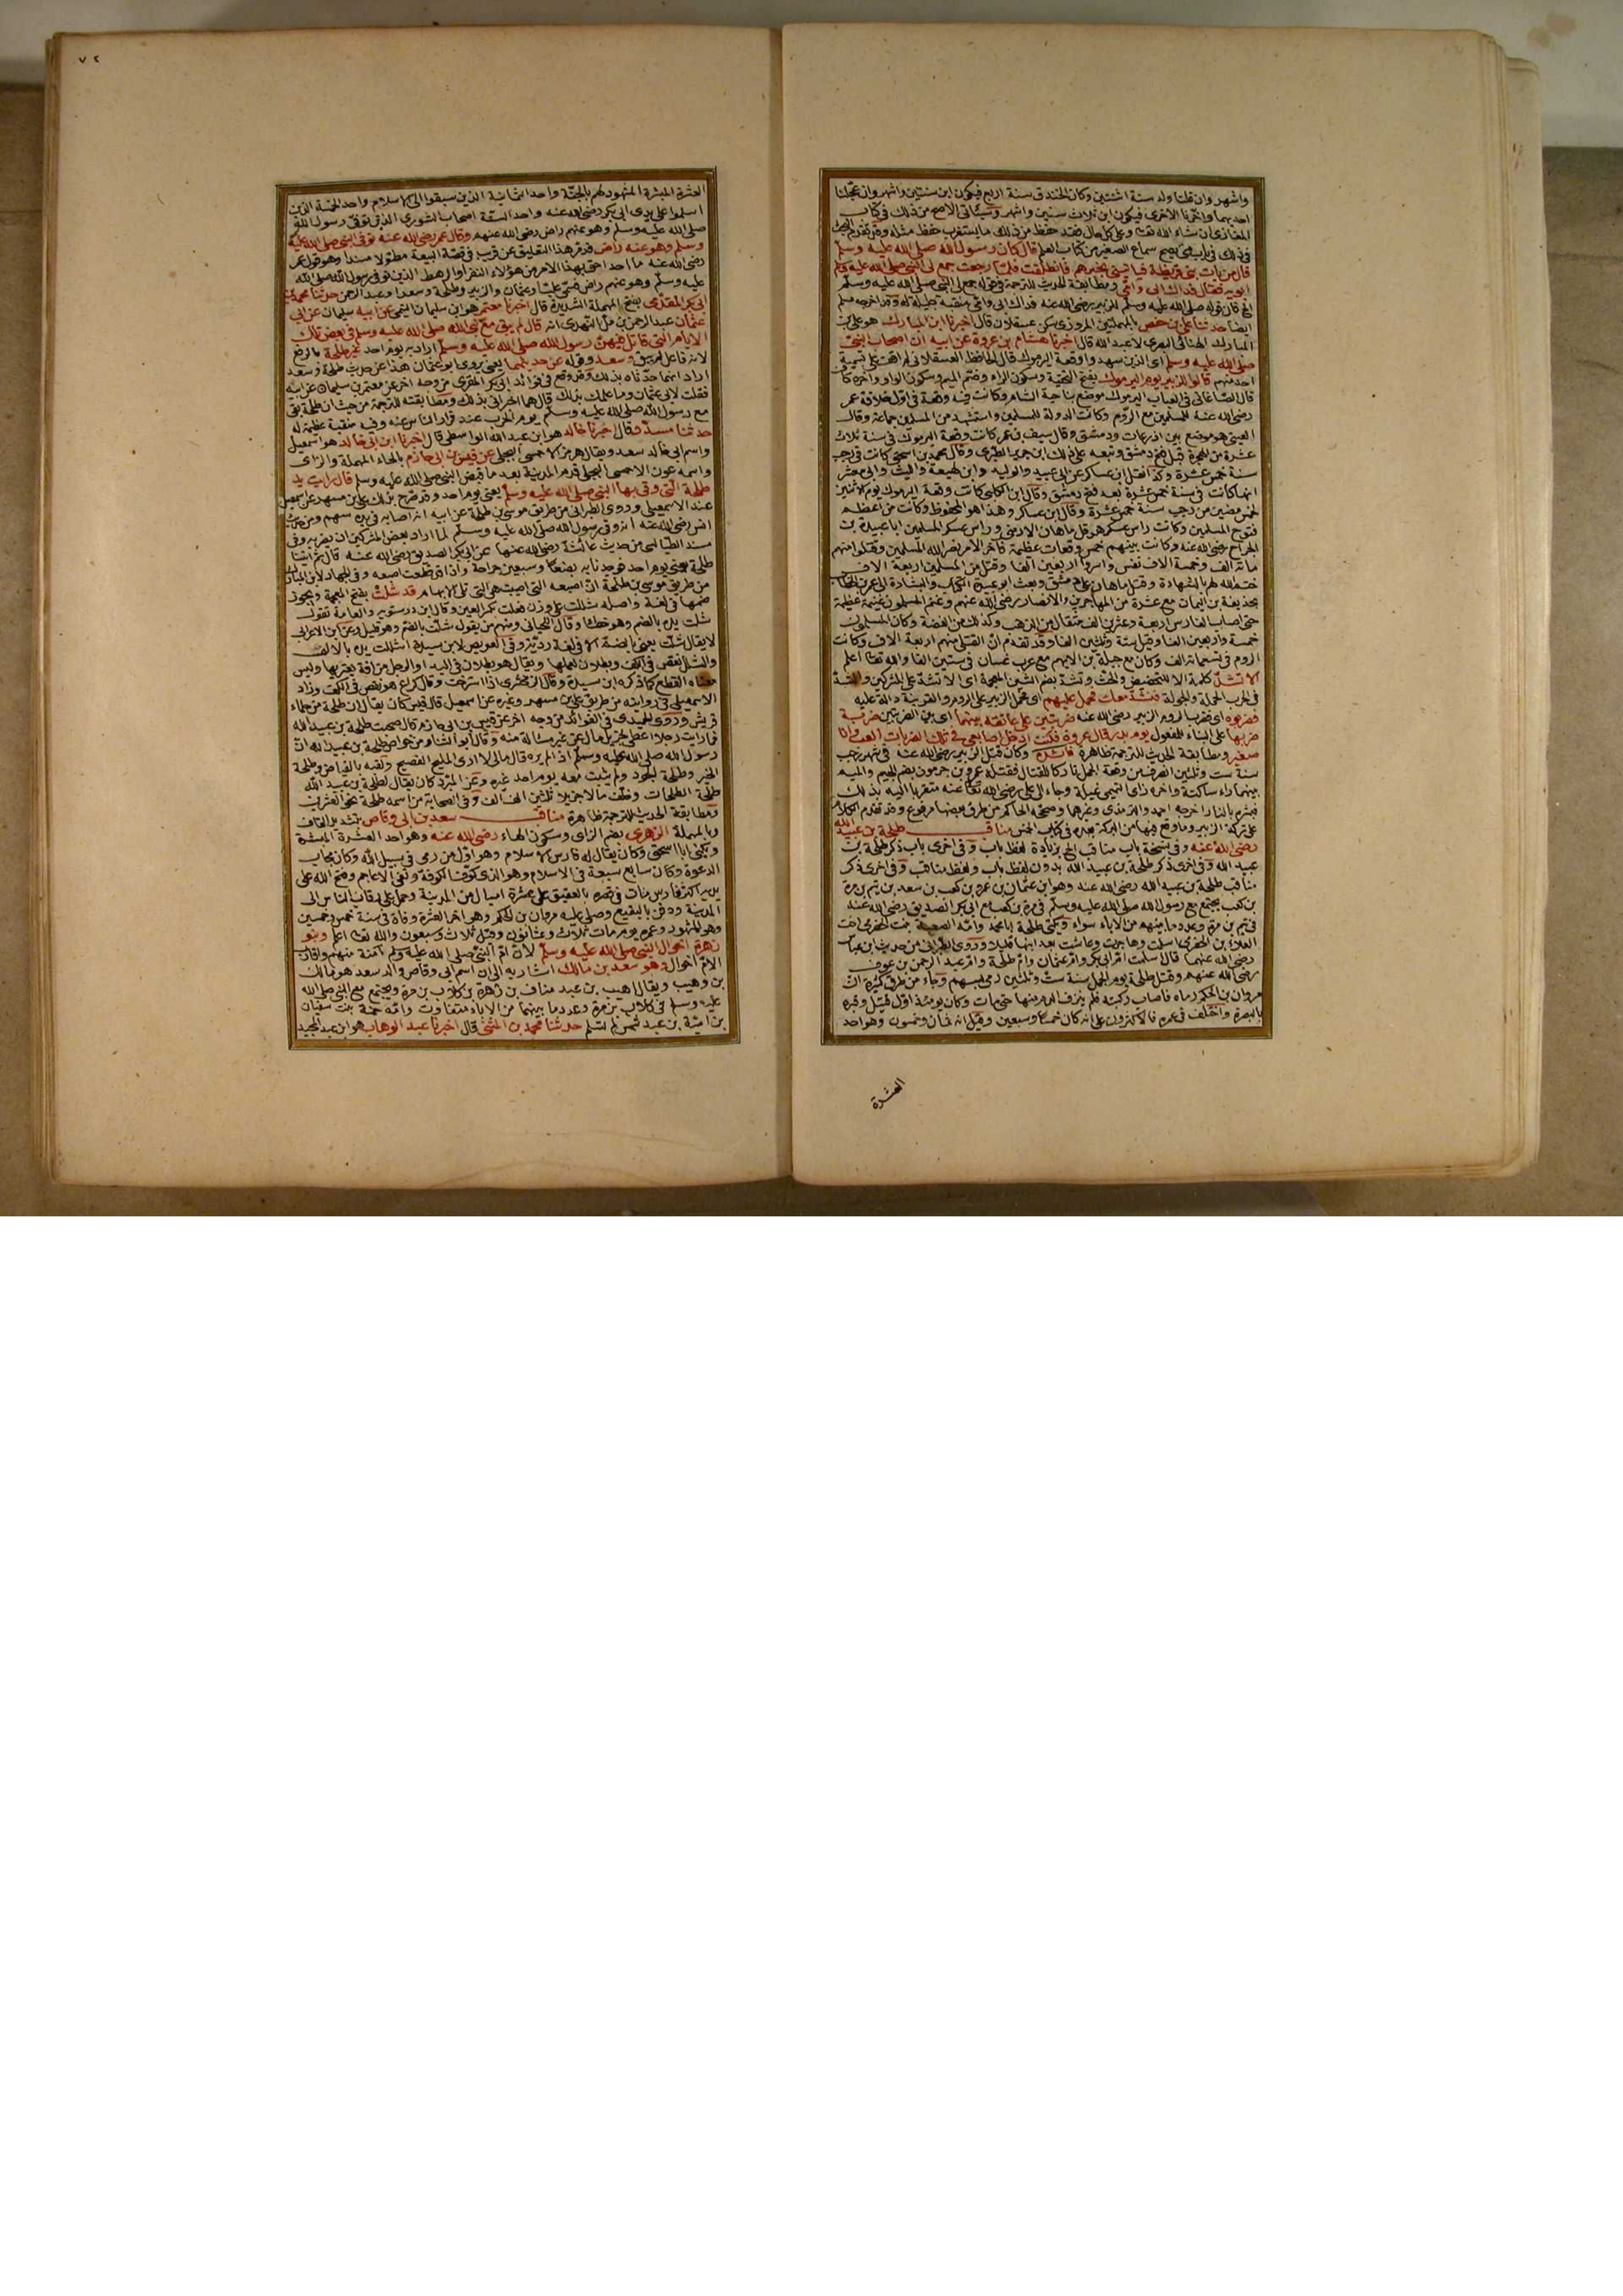 واشهر وان قلنا ولد سنة اثنتين وكان الخندق سنة اربع فيكون ابن سنتين واشهر وان عجلنا
احديهما واخرنا الاخرى فيكون ابن ثلاث سنين واشهر وسيأتي الاصح من ذلك في كتاب
المغازي ان شاء الله تعالى وعلى كل حال فقد حفظ من ذلك ما يستغرب حفظ مثله وقد تقدم البحث
في ذلك في باب متى يصح سماع الصغير من كتاب العلم قال كان رسول الله صلى الله عليه وسلم
قال من يأت بني قريظة فيأتيني بخبرهم فانطلقت فلما رجعت جمع لي النبي صلى الله عليه وسلم
ابويه فقال فداك ابي وامي ومطابقة الحديث للترجمة في قوله جمع لي النبي صلى الله عليه وسلم
الخ فان قوله صلى الله عليه وسلم للزبير رضي الله عنه فداك ابي وامي منقبة جليلة له وقد اخرجه مسلم
ايضا حدثنا علي بن حفص بالمهملتين المروزي سكن عسقلان قال اخبرنا ابن المبارك هو علي بن
المبارك الهنائي البصري لا عبد الله قال اخبرنا هشام بن عروة عن ابيه ان اصحاب النبي
صلى الله عليه وسلم اي الذين شهدوا وقعة اليرموك قال الحافظ العسقلاني لم اقف على تسمية
احد منهم قالوا للزبير يوم اليرموك بفتح التحتية وسكون الراء وضم الميم وسكون الواو واخره كاف
قال الصغاني في العباب اليرموك موضع بناحية الشام وكانت فيه وقعة في اول خلافة عمر
رضي الله عنه للمسلمين مع الروم وكانت الدولة للمسلمين واستشهد من المسلمين جماعة وقال
العيني هو موضع بين اذرعات ودمشق وقال سيف بن عمر كانت وقعة اليرموك في سنة ثلاث
عشرة من الهجرة قبل فتح دمشق وتبعه على ذلك ابن جرير الطبري وقال محمد بن اسحق كانت في رجب
سنة خمس عشرة وكذا نقل ابن عساكر عن ابي عبيد والوليد وابن لهيعة والليث وابي معشر
انها كانت في سنة خمس عشرة بعد فتح دمشق وقال ابن الكلبي كانت وقعة اليرموك يوم الاثنين
لخمس مضين من رجب سنة خمس عشرة وقال ابن عساكر وهذا هو المحفوظ وكانت من اعظم
فتوح المسلمين وكانت راس عسكر هرقل ماهان الارمني وراس عسكر المسلمين ابا عبيدة بن
الجراح رضي الله عنه وكانت بينهم خمس وقعات عظيمة فاخر الامر نصر الله المسلمين وقتلوا منهم
مائة الف وخمسة الاف نفس واسروا اربعين الفا وقتل من المسلمين اربعة الاف
ختم الله لهم بالشهادة وقتل ماهان على دمشق وبعث ابو عبيدة الكتاب والبشارة الى عمر بن الخطاب
بحذيفة بن اليمان مع عشرة من المهاجرين والانصار رضي الله عنهم وغنم المسلمون غنيمة عظيمة
حتى اصاب الفارس اربعة وعشرين الف مثقال من الذهب وكذلك من الفضة وكان المسلمون
خمسة واربعين الفا وقيل ستة وثلثين الفا وقد تقدم ان القتلى منهم اربعة الاف وكانت
الروم في تسعمائة الف وكان مع جبلة بن الايهم مع عرب غسان في ستين الفا والله تعالى اعلم
الا تشد كلمة الا للتحضيض والحث وتشد بضم الشين المعجمة اي الا تشد على المشركين والشد
في الحرب الحملة والجولة فنشد معك فحمل عليهم اي فحمل الزبير على الروم والقرينة دالة عليه
فضربوه اي فضربت الروم الزبير رضي الله عنه ضربتين على عاتقه بينهما اي بين الضربتين ضربة
ضربها على البناء للمفعول يوم بدر قال عروة فكنت ادخل اصابعي في تلك الضربات العب وانا
صغير ومطابقة الحديث للترجمة ظاهرة فائدة وكان قتل الزبير رضي الله عنه في شهر رجب
سنة ست وثلثين انصرف من وقعة الجمل تاركا للقتال فقتله عمرو بن جرموز بضم الجيم والميم
بينهما راء ساكنة واخره زاي التميمي غيلة وجاء الى علي رضي الله تعالى عنه متقربا اليه بذلك
فبشره بالنار اخرجه احمد والترمذي وغيرهما وصححه الحاكم من طرق بعضها مرفوع وقد تقدم الكلام
على تركة الزبير وما وقع فيها من البركة بعده في كتاب الخمس مناقب طلحة بن عبيد الله
رضي الله عنه وفي نسخة باب مناقب الخ بزيادة لفظ باب وفي اخرى باب ذكر طلحة بن
عبيد الله وفي اخرى ذكر طلحة بن عبيد الله بدون لفظ باب ولفظ مناقب وفي اخرى ذكر
مناقب طلحة بن عبيد الله رضي الله عنه وهو ابن عثمان بن عمرو بن كعب بن سعد بن تيم بن مرة
بن كعب يجتمع مع رسول الله صلى الله عليه وسلم في مرة بن كعب ومع ابي بكر الصديق رضي الله عنه
في تيم بن مرة وعدد ما بينهم من الاباء سواء ويكنى طلحة ابا محمد وامه الصعبة بنت الحضرمي اخت
العلاء بن الحضرمي اسلمت وهاجرت وعاشت بعد ابنها قليلا وروى الطبراني من حديث ابن عباس
رضي الله عنهما قال اسلمت ام ابي بكر وام عثمان وام طلحة وام عبد الرحمن بن عوف
رضي الله عنهم وقتل طلحة يوم الجمل سنة ست وثلثين رمي بسهم وجاء من طرق كثيرة ان
مروان بن الحكم رماه فاصاب ركبته فلم يزل ينزف الدم منها حتى مات وكان يومئذ اول قتيل وقبره
بالبصرة واختلف في عمره فالاكثرون على انه كان خمسا وسبعين وقيل انه ثمان وخمسون وهو احد
العشرة
٧٢
العشرة المبشرة المشهود لهم بالجنة واحد الثمانية الذين سبقوا الى الاسلام واحد الخمسة الذين
اسلموا على يدي ابي بكر رضي الله عنه واحد الستة اصحاب الشورى الذين توفي رسول الله
صلى الله عليه وسلم وهو عنهم راض رضي الله عنهم وقال عمر رضي الله عنه توفي النبي صلى الله عليه
وسلم وهو عنه راض قد مر هذا التعليق عن قريب في قصة البيعة مطولا مسندا وهو قول عمر
رضي الله عنه ما احد احق بهذا الامر من هؤلاء النفر او الرهط الذين توفي رسول الله صلى الله
عليه وسلم وهو عنهم راض فسمى عليا وعثمان والزبير وطلحة وسعدا وعبد الرحمن حدثنا محمد بن
ابي بكر المقدمي بفتح المهملة الشديدة قال اخبرنا معتمر هو ابن سليمان التيمي عن ابيه سليمان عن ابي
عثمان عبد الرحمن بن مل النهدي انه قال لم يبق مع النبي صلى الله عليه وسلم في بعض تلك
الايام التي قاتل فيهن رسول الله صلى الله عليه وسلم اراد به يوم احد غير طلحة بالرفع
لانه فاعل لم يبق وسعد وقوله عن حديثهما يعني يروي ابو عثمان هذا عن حديث طلحة وسعد
اراد انهما حدثاه بذلك ووقع في فوائد ابي بكر المقري من وجه اخر عن معتمر بن سليمان عن ابيه
فقلت لابي عثمان وما علمك بذلك قال هما اخبراني بذلك ومطابقته للترجمة من حيث ان طلحة بقي
مع رسول الله صلى الله عليه وسلم يوم الحرب عند فرار الناس عنه وفيه منقبة عظيمة له
حدثنا مسدد قال اخبرنا خالد هو ابن عبد الله الواسطي قال اخبرنا ابن ابي خالد هو اسمعيل
واسم ابي خالد سعد ويقال هرمز الاحمسي البجلي عن قيس بن ابي حازم بالحاء المهملة والزاي
واسمه عوف الاحمسي البجلي قدم المدينة بعد ما قبض النبي صلى الله عليه وسلم قال رايت يد
طلحة التي وقى بها النبي صلى الله عليه وسلم يعني يوم احد وقد صرح بذلك علي بن مسهر عن اسمعيل
عند الاسمعيلي وروى الطبراني من طريق موسى بن طلحة عن ابيه انه اصابه في يده سهم ومن حديث
انس رضي الله عنه انه وقى رسول الله صلى الله عليه وسلم لما اراد بعض المشركين ان يضربه وفي
مسند الطيالسي من حديث عائشة رضي الله عنها عن ابي بكر الصديق رضي الله عنه قال ثم اتينا
طلحة يعني يوم احد فوجدنا به بضعا وسبعين جراحة واذا قد قطعت اصبعه وفي الجهاد لابن المبارك
من طريق موسى بن طلحة ان اصبعه التي اصيبت هي التي تلي الابهام قد شلت بفتح المعجمة ويجوز
ضمها في لغة واصله شللت على وزن فعلت بكسر العين وقال ابن درستويه والعامة تقول
شلت يده بالضم وهو خطا وقال اللحياني ومنهم من يقول شلت بالضم وهو قليل وعن ابن الاعرابي
لا يقال شلت يعني بالضم الا في لغة رديئة وفي العويص لابن سيدة اشللت يده بالالف
والشلل نقص في الكف وبطلان لعملها ويقال هو بطلان في اليد او الرجل من افة يعتريها وليس
معناه القطع كما ذكره ابن سيدة وقال الزمخشري اذا استرخت وقال كراع هو نقص في الكف وزاد
الاسمعيلي في روايته من طريق علي بن مسهر وغيره عن اسمعيل قال قيس كان يقال ان طلحة من حلماء
قريش وروى الحميدي في الفوائد من وجه اخر عن قيس بن ابي حازم قال صحبت طلحة بن عبيد الله
فما رايت رجلا اعطى لجزيل مال عن غير مسألة منه وقال ابو
رسول الله صلى الله عليه وسلم اذا لم يره قال مالي لا ارى المليح الفصيح ولقبه بالفياض وطلحة
الخير وطلحة الجود ولم يثبت معه يوم احد غيره وعن المبرد كان يقال لطلحة بن عبيد الله
طلحة الطلحات وخلف مالا جزيلا ثلثين الف الف وفي الصحابة من اسمه طلحة نحو العشرين
ومطابقة الحديث للترجمة ظاهرة مناقب سعد بن ابي وقاص بتشديد القاف
وبالمهملة الزهري بضم الزاي وسكون الهاء رضي الله عنه وهو احد العشرة المبشرة
ويكنى ابا اسحق وكان يقال له فارس الاسلام وهو اول من رمى في سبيل الله وكان مجاب
الدعوة وكان سابع سبعة في الاسلام وهو الذي كوف الكوفة ونفى الاعاجم وفتح الله على
يديه اكثر فارس مات في قصره بالعقيق على عشرة اميال من المدينة وحمل على رقاب الناس الى
المدينة ودفن بالبقيع وصلى عليه مروان بن الحكم وهو اخر العشرة وفاة في سنة خمس وخمسين
وهو المشهور وعمره يوم مات ثلاث وثمانون وقيل ثلاث وسبعون والله تعالى اعلم وبنو
زهرة اخوال النبي صلى الله عليه وسلم لان ام النبي صلى الله عليه وسلم آمنة منهم واقارب
الام اخوال وهو سعد بن مالك اشار به الى ان اسم ابي وقاص والد سعد هو مالك
بن وهيب ويقال اهيب بن عبد مناف بن زهرة بن كلاب بن مرة ويجتمع مع النبي صلى الله
عليه وسلم في كلاب بن مرة وعدد ما بينهما من الاباء متفاوت وامه حمنة بنت سفيان
بن امية بن عبد شمس لم تسلم حدثنا محمد بن المثنى قال اخبرنا عبد الوهاب هو ابن عبد المجيد